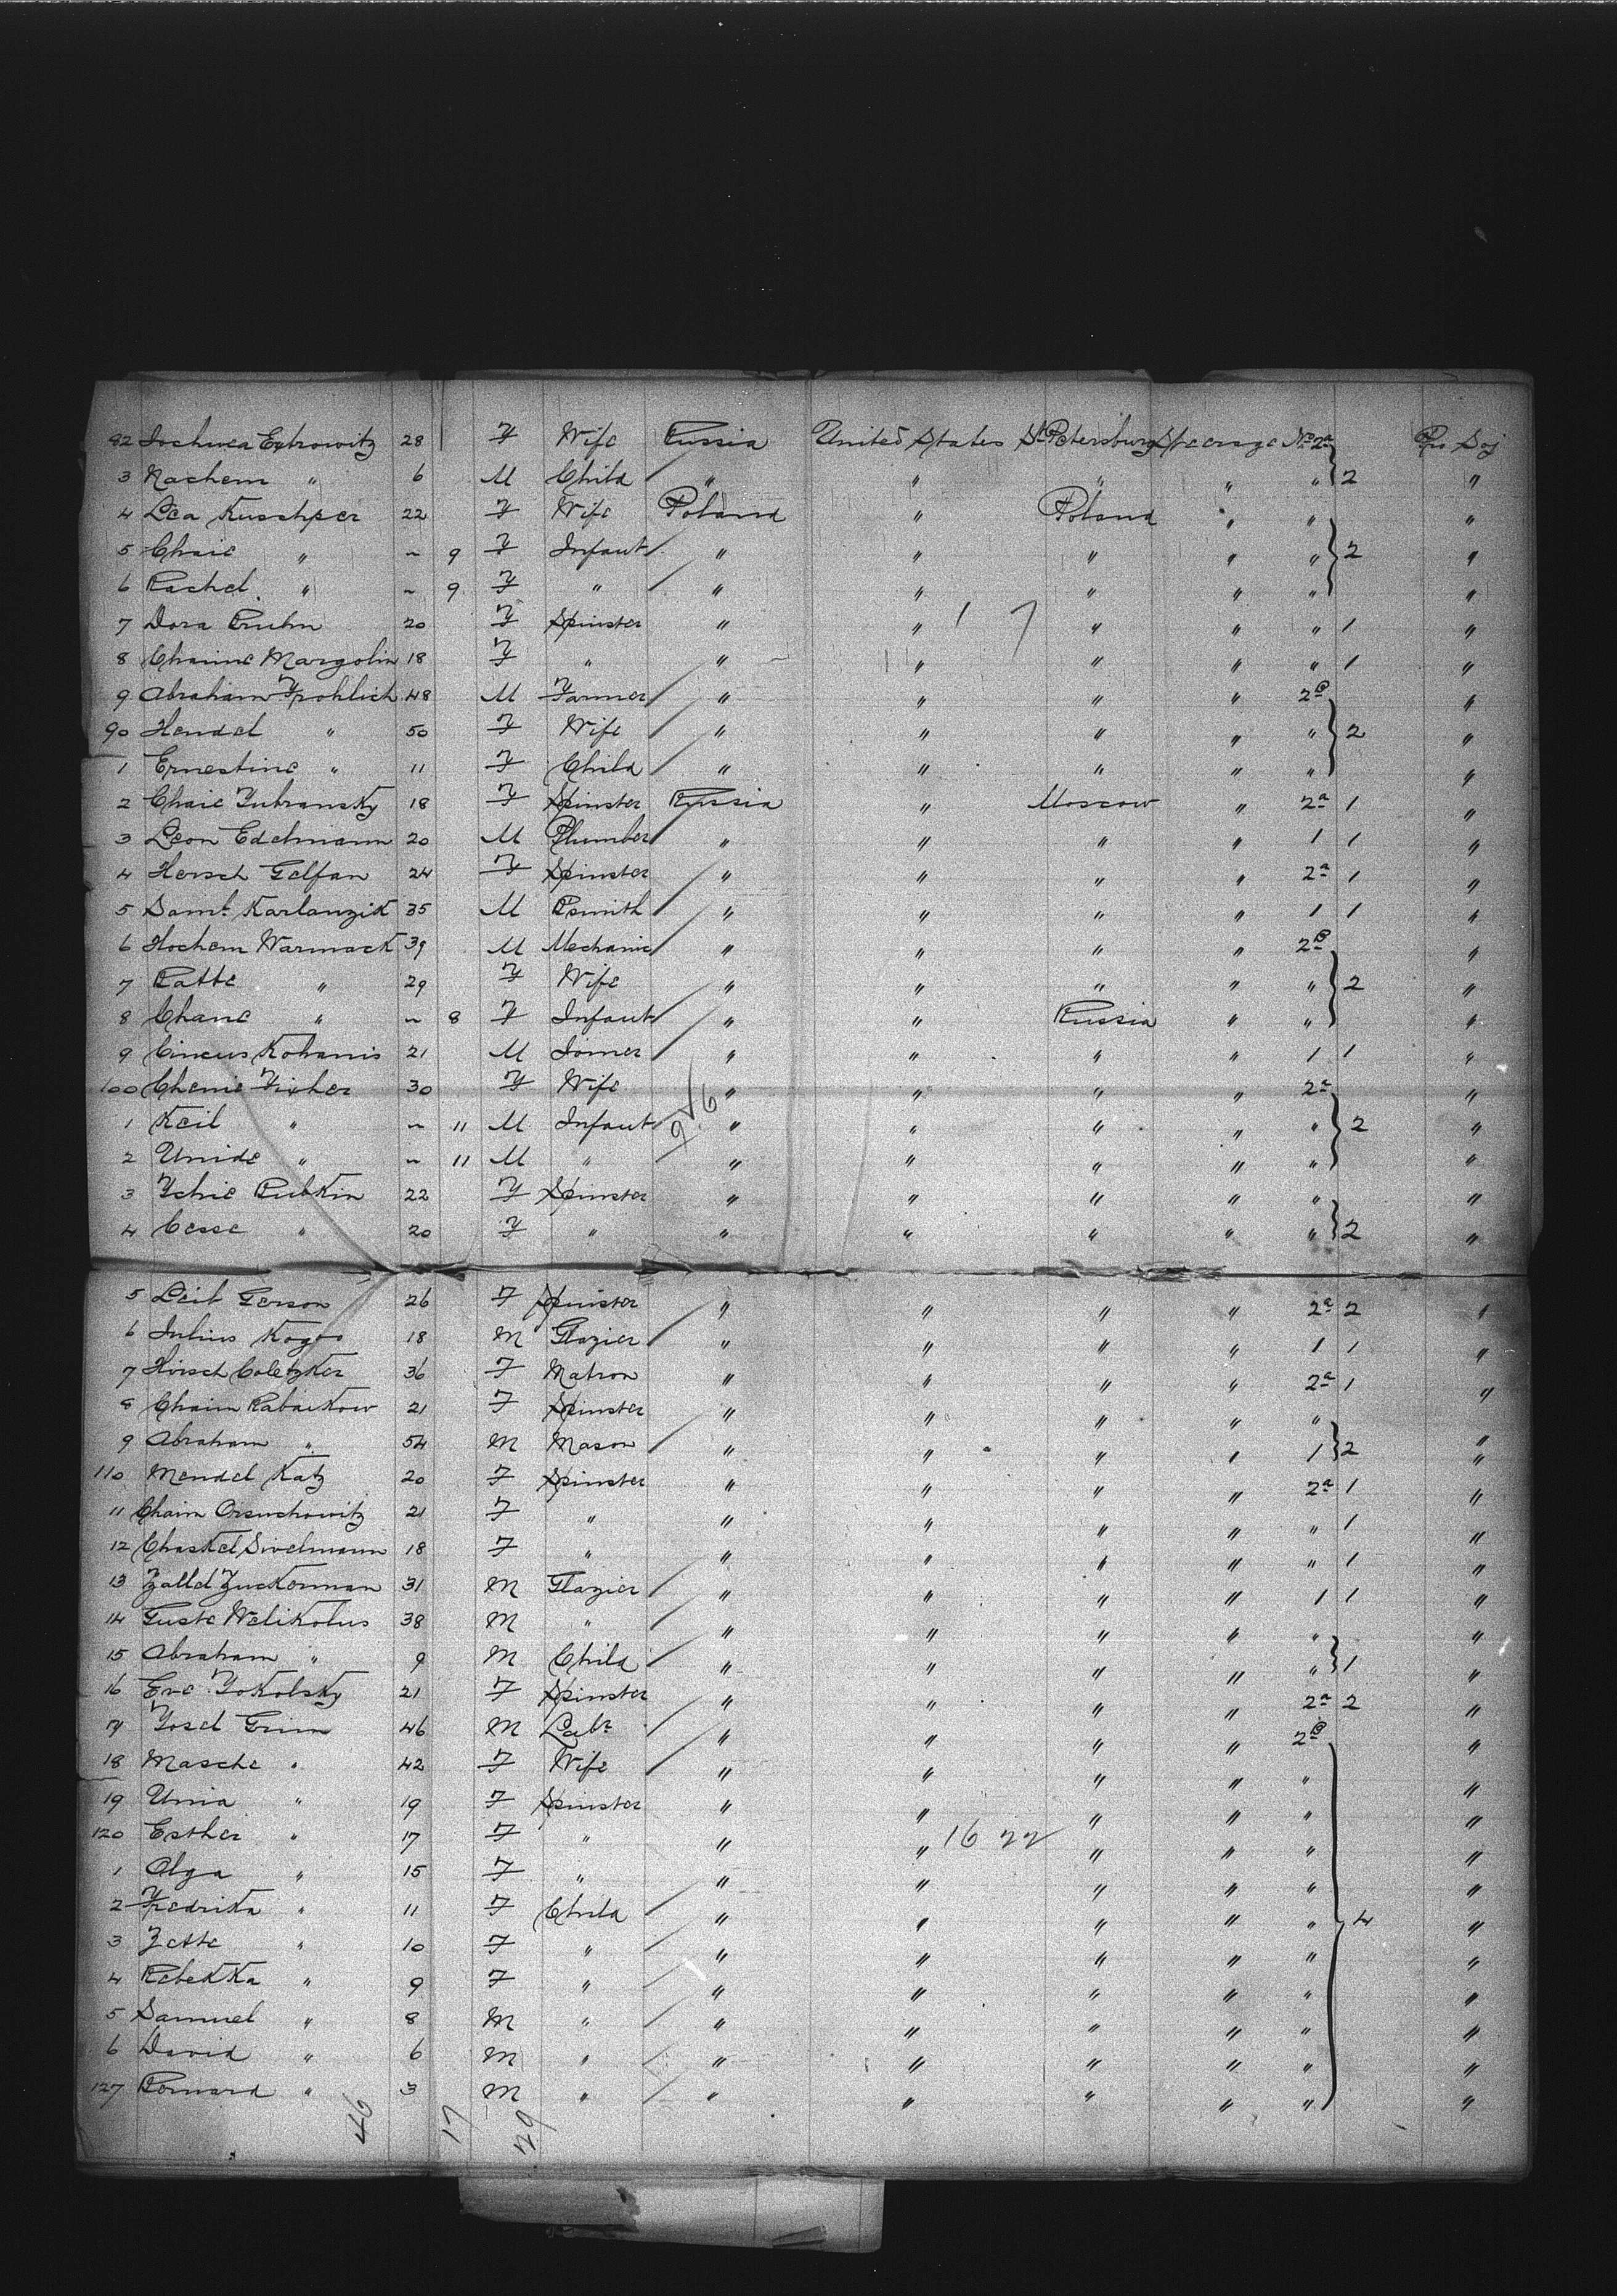 82 Jochwea Eytrowitz 28 F Wife Russia United States St Petersburg Steerage No 2a Pro Soj
3 Nachem " 6 M Child " " " " " 2 "
4 Lea Kuschper 22 F Wife Poland " Poland " " "
5 Chaie " ~ 9 F Infant " " " " " 2 "
6 Rachel " ~ 9 F " " " " " " "
7 Dora Bruhn 20 F Spinster " " " " " 1 "
1 7
8 Chaime Margolin 18 F " " " " " " 1 "
9 Abraham Frohlich 48 M Farmer " " " " 2B "
90 Hendel " 50 F Wife " " " " " 2 "
1 Ernestine " 11 F Child " " " " " "
2 Chaie Zubransky 18 F Spinster Russia " Moscow " 2a 1 "
3 Leon Edelmann 20 M Plumber " " " " 1 1 "
4 Hersch Gelfan 24 F Spinster " " " " 2a 1 "
5 Saml Karlanzik 35 M Bsmith " " " " 1 1 "
6 Hochem Warmack 39 M Mechanic " " " " 2B "
7 Ratte " 29 F Wife " " " " " 2 "
8 Chane " ~ 8 F Infant " " Russia " " "
9 Cincus Kohanis 21 M Joiner " " " " 1 1 "
100 Chenie Fisher 30 F Wife " " " " 2a "
1 Keil " ~ 11 M Infant " " " " " 2 "
2 Unide " ~ 11 M " " " " " " "
3 Ichie Rubkin 22 F Spinster " " " " " "
4 Cesse " 20 F " " " " " " 2 "
5 Leib Gerson 26 F Spinster " " " " 2a 2 "
6 Julius Kogoo 18 M Glazier " " " " 1 1 "
7 Hirsch Coletzker 36 F Matron " " " " 2a 1 "
8 Chaim Rabaikow 21 F Spinster " " " " " "
9 Abraham " 54 M Mason " " " " 1 2 "
110 Mendel Katz 20 F Spinster " " " " 2a 1 "
11 Chaim Orsuchowitz 21 F " " " " " " 1 "
12 Chaskel Sivelmann 18 F " " " " " " 1 "
13 Zalled Zuckerman 31 M Glazier " " " " 1 1 "
14 Guste Welikolus 38 M " " " " " " "
15 Abraham " 9 M Child " " " " " 1 "
16 Eve Yokolsky 21 F Spinster " " " " 2a 2 "
17 Yosel Grim 46 M Labr " " " " 2B "
18 Masche " 42 F Wife " " " " " "
19 Unia " 19 F Spinster " " " " " "
120 Esther " 17 F " " " " " " "
16 22
1 Olga " 15 F " " " " " " "
2 Fredrika " 11 F Child " " " " " 4 "
3 Zette " 10 F " " " " " " "
4 Rebekka " 9 F " " " " " " "
5 Samuel " 8 M " " " " " " "
6 David " 6 M " " " " " " "
127 Bernard " 3 M " " " " " " "
46 17 29